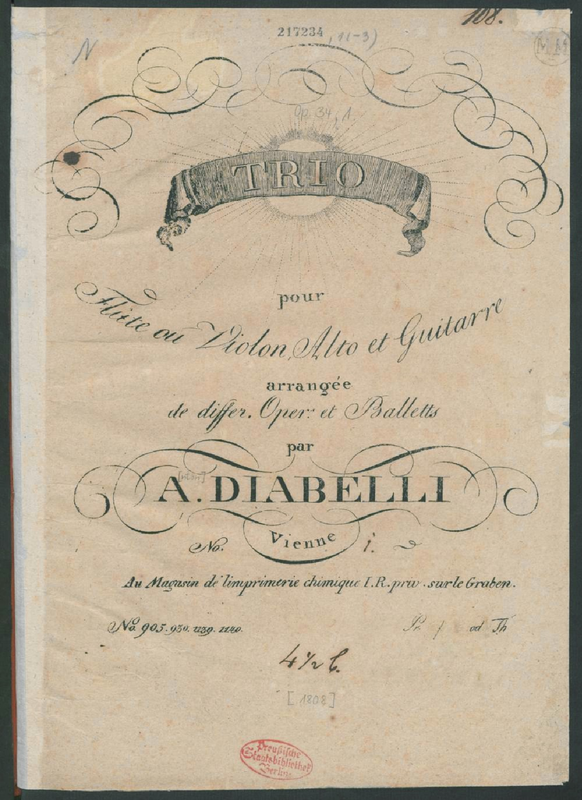 108.
217234, (1-3)
N
Op. 34, 1.
TRIO
pour
Flûte ou Violon, Alto et Guitarre
arrangée
de differ. Oper: et Balletts
par
A. DIABELLI
Vienne
No. 1.
Au Magasin de l'imprimerie chimique I.R. priv. sur le Graben.
No. 905. 930. 1139. 1120.
od Th
4 1/2 b.
[1808]
Preußische
Staatsbibliothek
Berlin